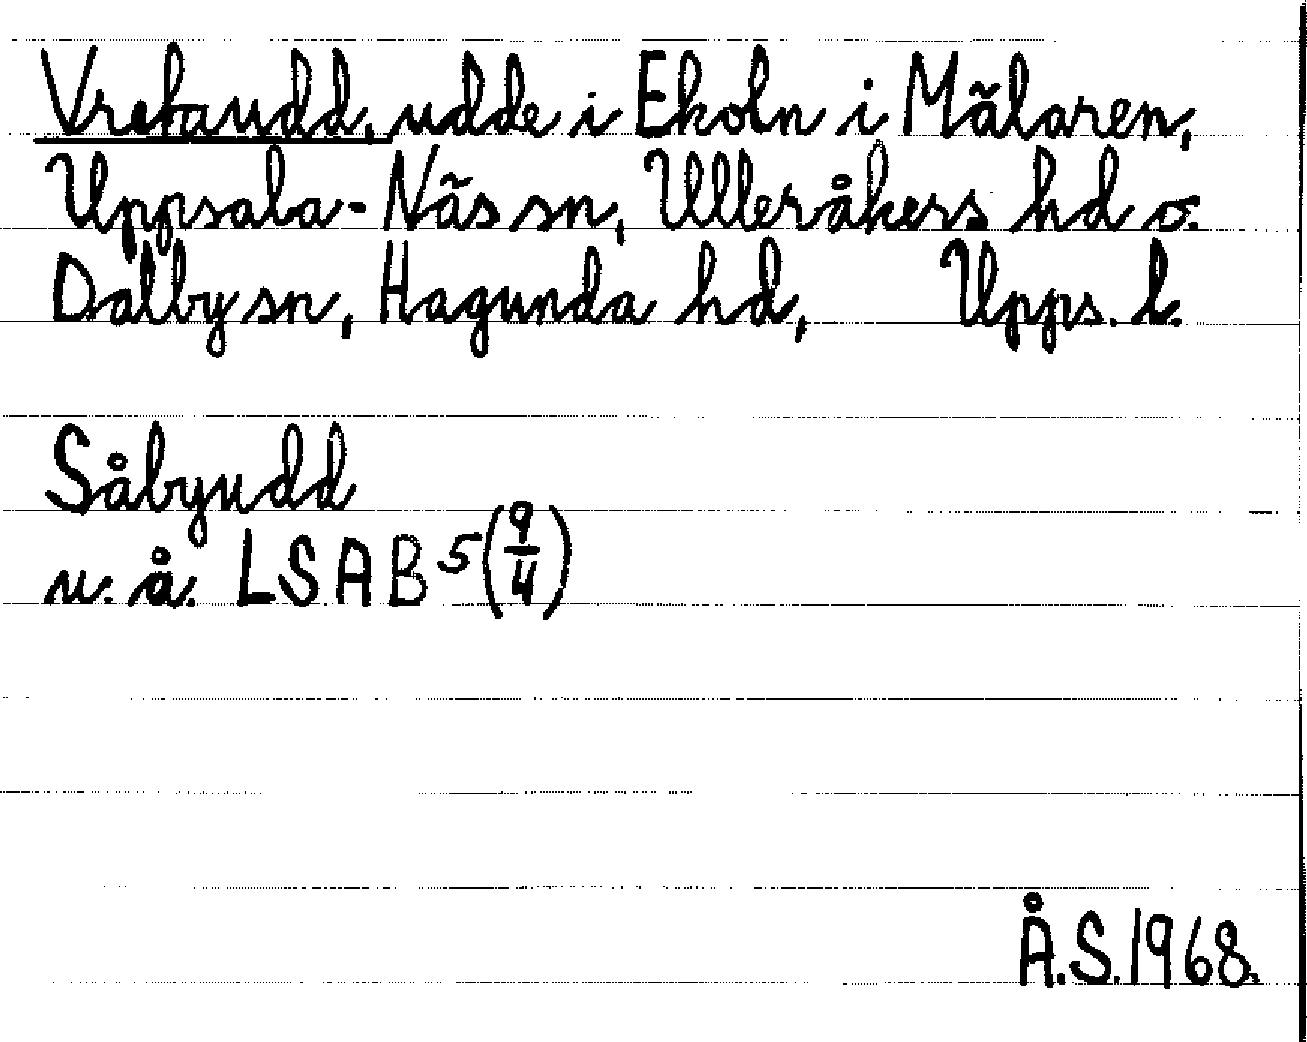 Vretaudd, udde i Ekoln i Mälaren,
Uppsala-Näs sn, Ulleråkers hd o.
Dalby sn, Hagunda hd, Upps. l.
Såbyudd
u. å. LSA B 5 (9/4)
Å.S. 1968.